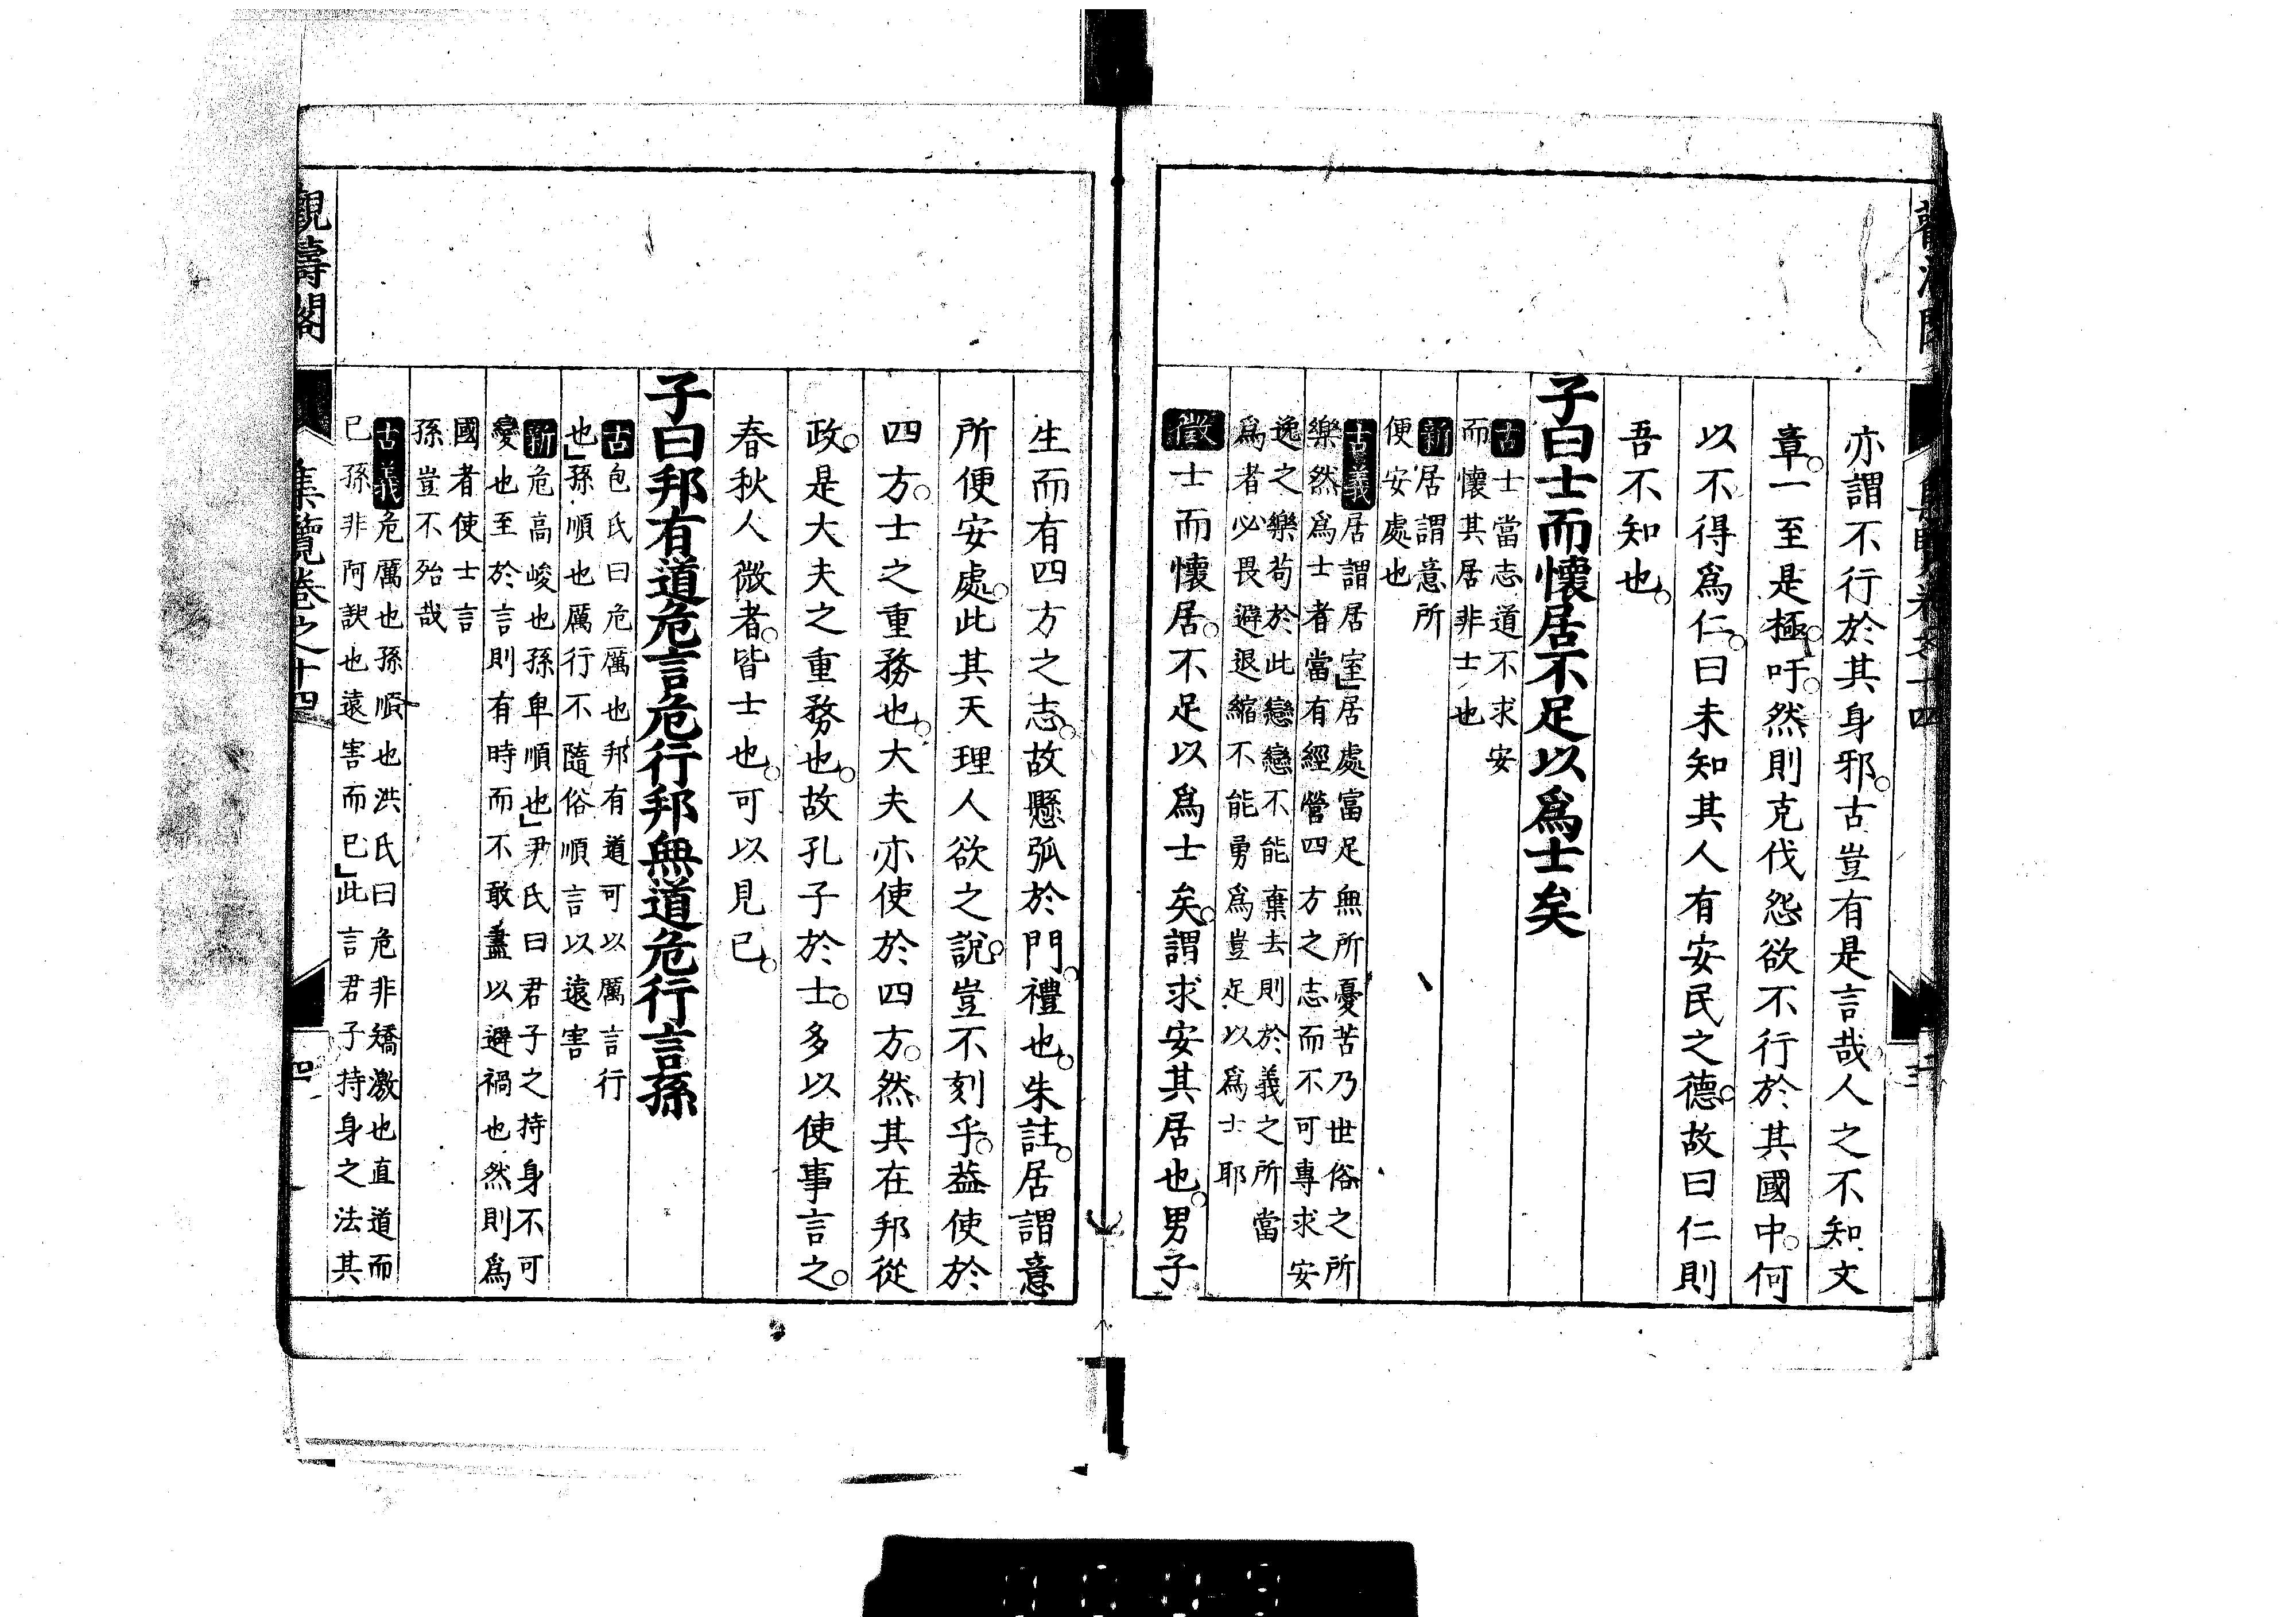 亦謂不行於其身邪。古豈有是言哉。人之不知文
章。一至是極。吁。然則克伐怨欲不行於其國中。何
以不得爲仁。曰未知其人有安民之德。故曰仁則
吾不知也。
子曰士而懷居不足以爲士矣
古士當志道不求安
而懷其居非士也
新居謂意所
便安處也
古義居謂居室」居處富足無所憂苦乃世俗之所
樂然爲士者當有經營四方之志而不可專求安
逸之樂苟於此戀戀不能棄去則於義之所當
爲者必畏避退縮不能勇爲豈足以爲士耶
徵士而懷居。不足以爲士矣。謂求安其居也。男子
生而有四方之志。故懸弧於門。禮也。朱註。居謂意
所便安處。此其天理人欲之說。豈不刻乎。益使於
四方。士之重務也。大夫亦使於四方。然其在邦從
政。是大夫之重務也。故孔子於士。多以使事言之。
春秋人微者。皆士也。可以見已。
子曰邦有道危言危行邦無道危行言孫
古包氏曰危厲也邦有道可以厲言行
也」孫順也厲行不隨俗順言以遠害
新危高峻也孫卑順也」尹氏曰君子之持身不可
變也至於言則有時而不敢盡以避禍也然則爲
國者使士言
孫豈不殆哉
古義危厲也孫順也洪氏曰危非矯激也直道而
已孫非阿諛也遠害而已」此言君子持身之法其
觀濤閣
集覽卷之十四
四